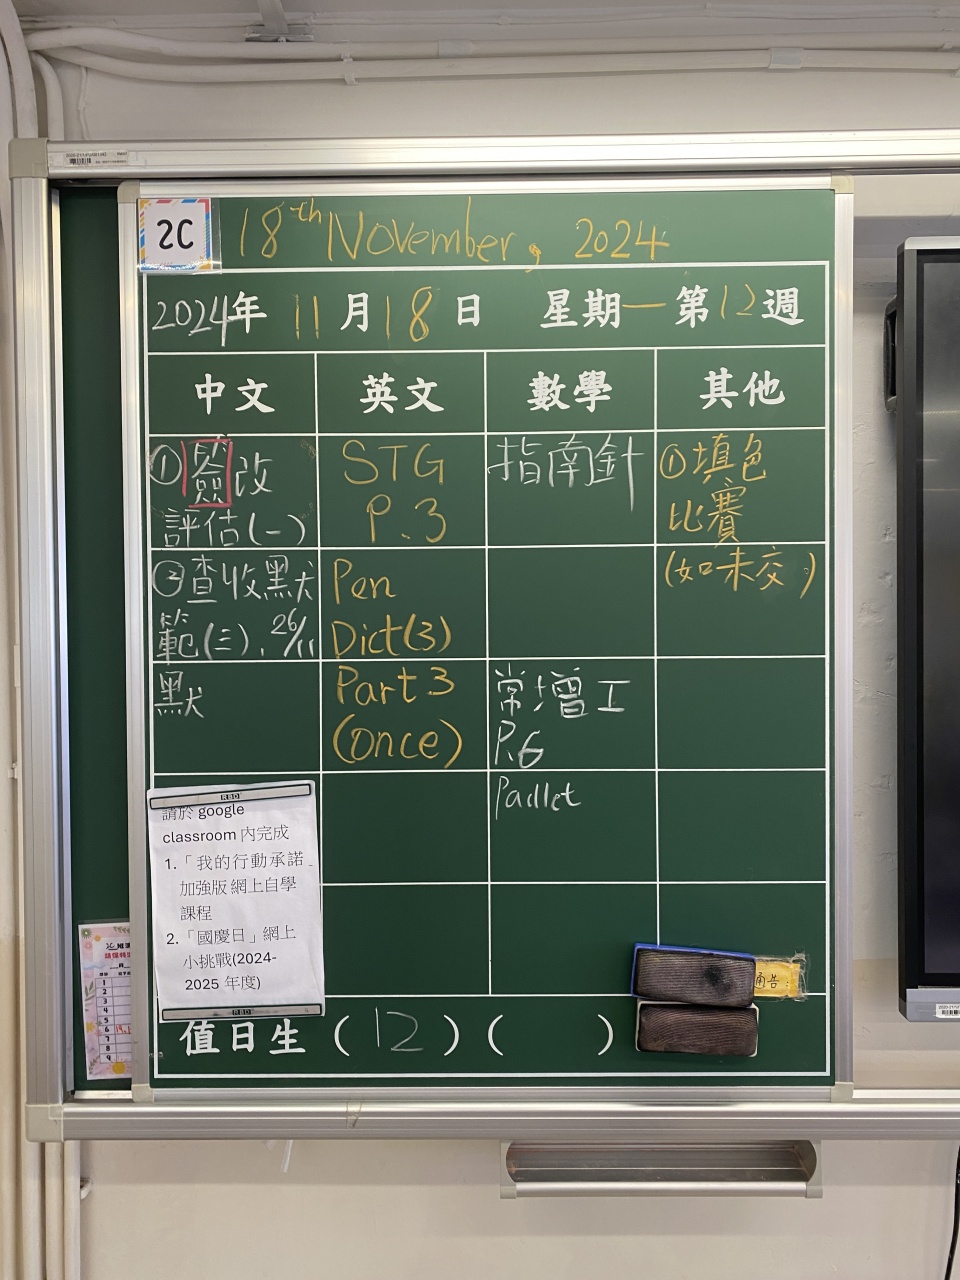 2C
18th November, 2024
2024年 11月18日 星期一 第12週
中文 英文 數學 其他
①簽改
評估(一)
②查收默
範(三), 26/11
默
STG
P.3
Pen
Dict(3)
Part 3
(once)
指南針
常增工
P.6
Padlet
①填色
比賽
(如未交)
請於 google
classroom 內完成
1.「我的行動承諾
加強版 網上自學
課程
2.「國慶日」網上
小挑戰(2024-
2025 年度)
通告:
值日生 (12) ( )